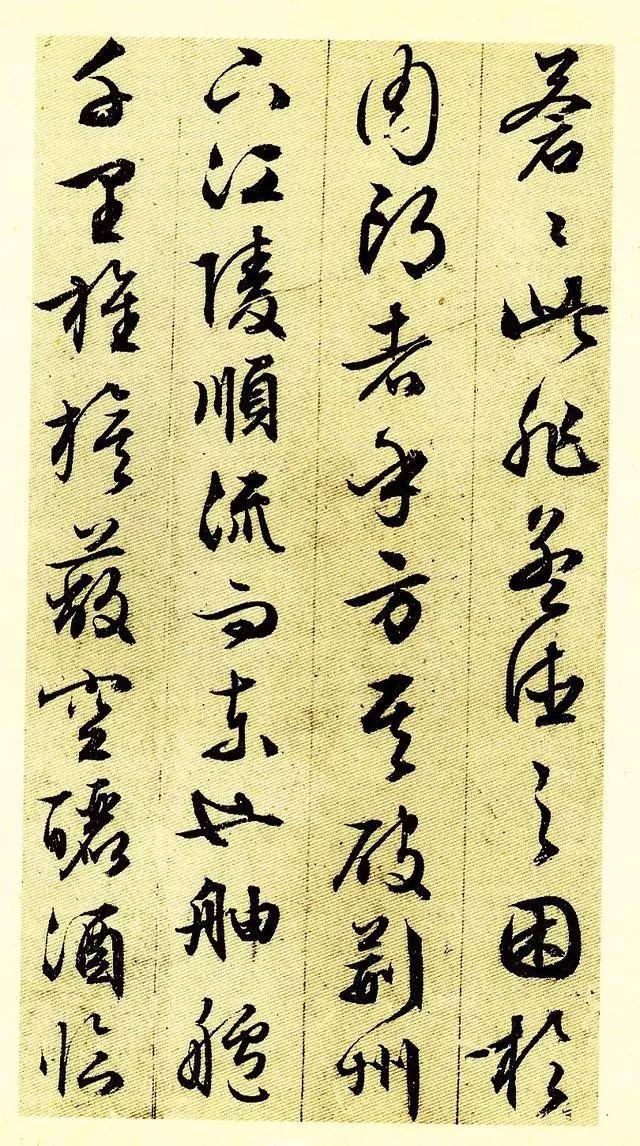 蒼〻此非孟德之困於
周郎者乎方其破荊州
下江陵順流而東也舳艫
千里旌旗蔽空釃酒臨